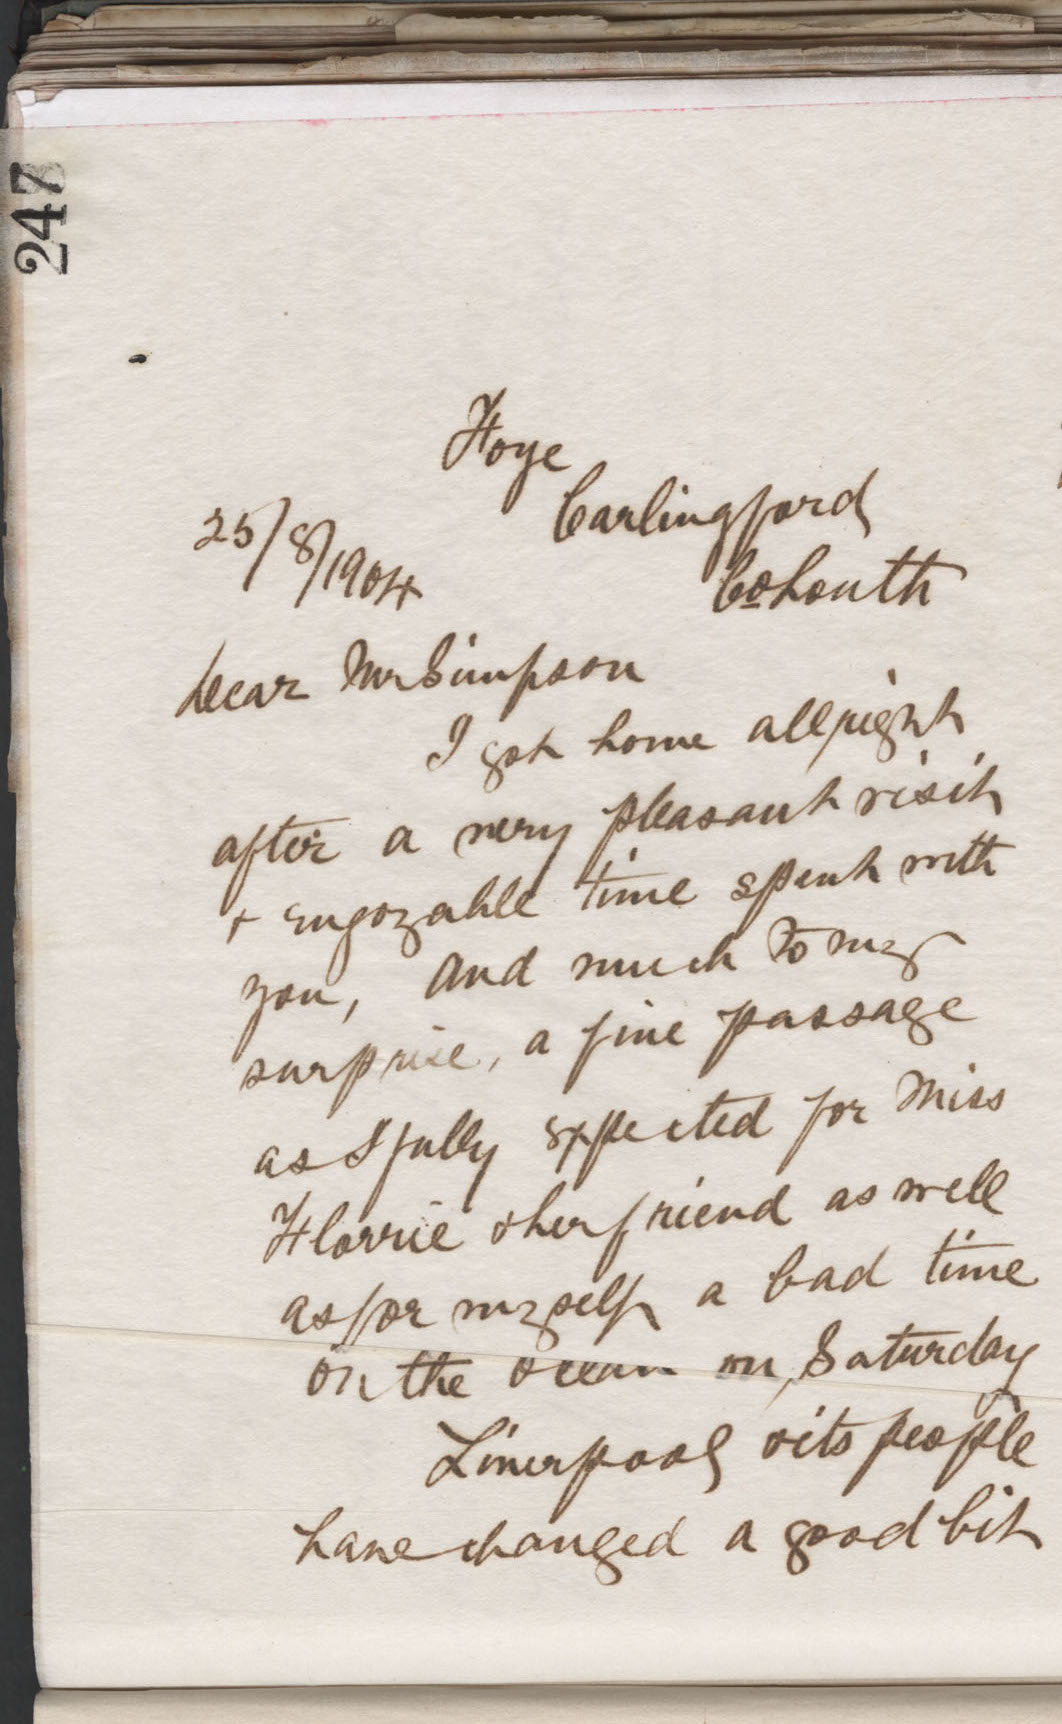 247
Foye
Carlingford
Co Louth
25/8/1904
Dear Mr Simpson
I got home allright
after a very pleasant visit
+ engoyable time spent with
you, and much to my
surprise, a fine passage
as I fully expected for Miss
Florrie & her friend as well
as for myself a bad time
on the ocean on Saturday
Liverpool & its people
have changed a good bit